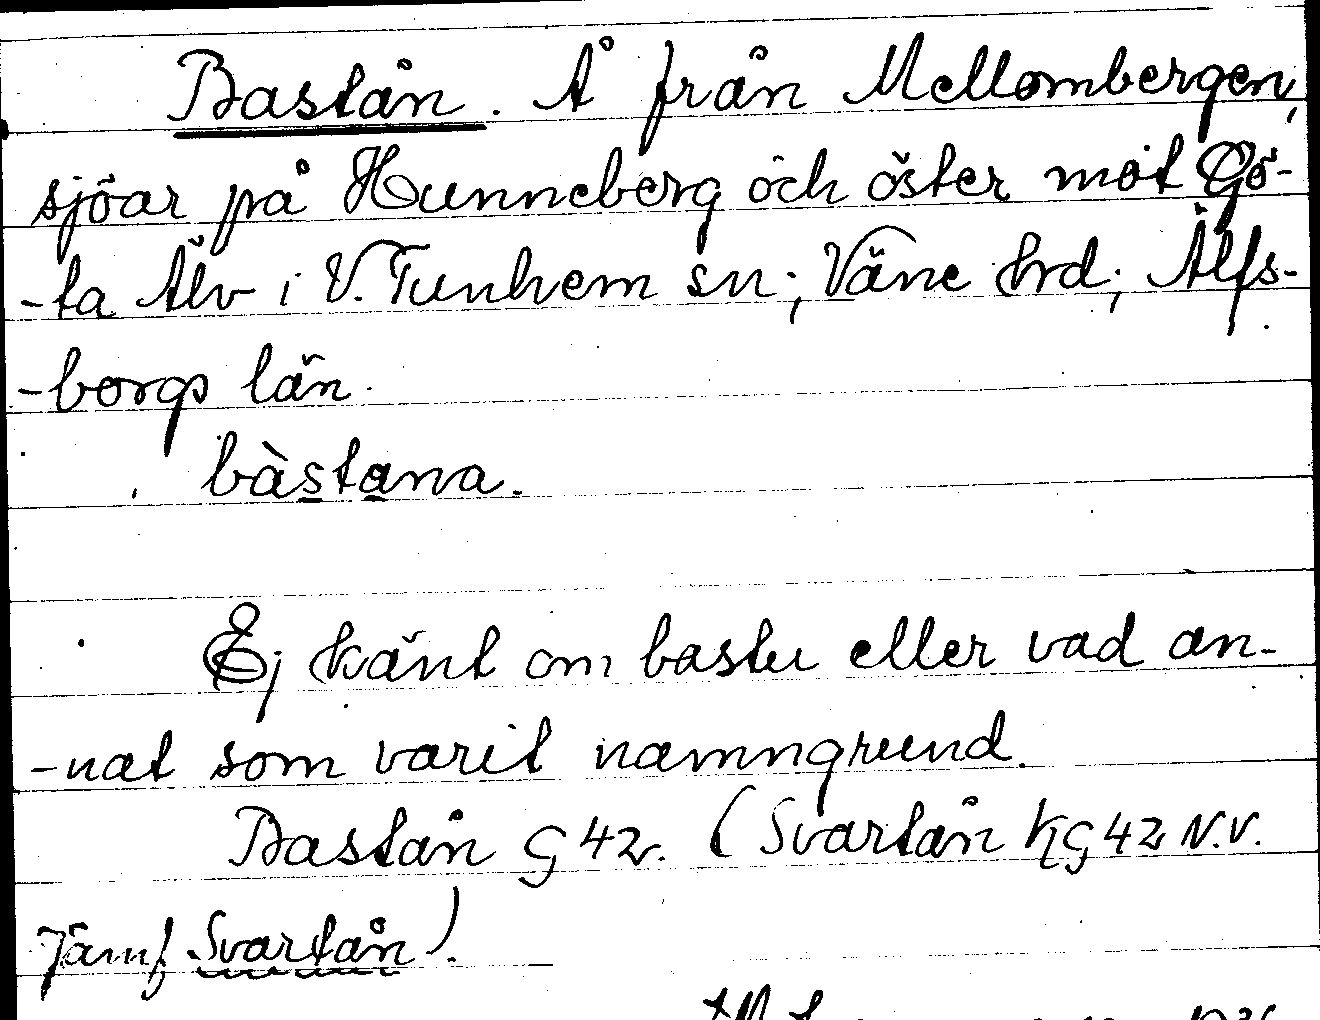 Bastån. Å från Mellombergen,
sjöar på Hunneberg och öster mot Gö-
-ta Älv i V. Tunhem sn; Väne hrd; Älfs-
-borgs län.
bàstana.
Ej känt om bastu eller vad an-
-nat som varit namngrund.
Bastån G 42. (Svartån KG 42 N.V.
Jämf Svartån).